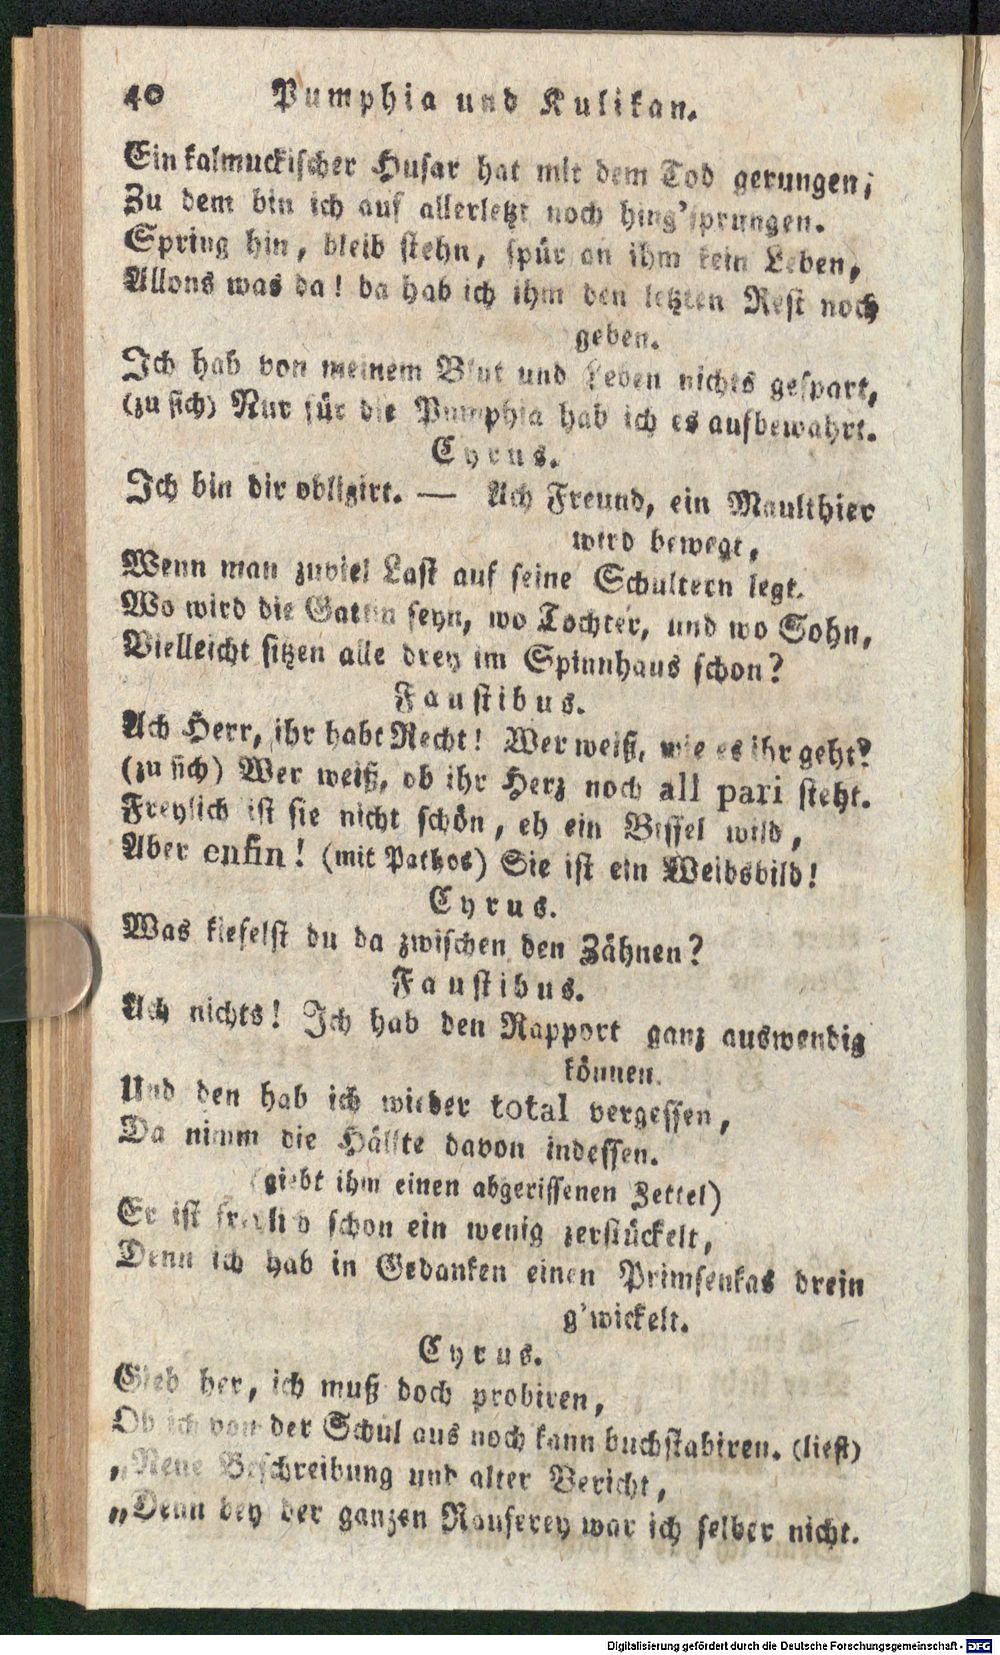 40 Pumphia und Kulikan.
Ein kalmuckischer Husar hat mit dem Tod gerungen;
Zu dem bin ich auf allerletzt noch hing'sprungen.
Spring hin, bleib stehn, spür an ihm kein Leben,
Allons was da! da hab ich ihm den letzten Rest noch
geben.
Ich hab von meinem Blut und Leben nichts gespart,
(zu sich) Nur für die Pumphia hab ich es aufbewahrt.
Cyrus.
Ich bin dir obligirt. — Ach Freund, ein Maulthier
wird bewegt,
Wenn man zuviel Last auf seine Schultern legt.
Wo wird die Gattin seyn, wo Tochter, und wo Sohn,
Vielleicht sitzen alle drey im Spinnhaus schon?
Faustibus.
Ach Herr, ihr habt Recht! Wer weiß, wie es ihr geht?
(zu sich) Wer weiß, ob ihr Herz noch all pari steht.
Freylich ist sie nicht schön, eh ein Bissel wild,
Aber enfin! (mit Pathos) Sie ist ein Weibsbild!
Cyrus.
Was kiefelst du da zwischen den Zähnen?
Faustibus.
Ach nichts! Ich hab den Rapport ganz auswendig
können.
Und den hab ich wieder total vergessen,
Da nimm die Hälfte davon indessen.
(giebt ihm einen abgerissenen Zettel)
Er ist freylich schon ein wenig zerstückelt,
Denn ich hab in Gedanken einen Primsenkas drein
g'wickelt.
Cyrus.
Gieb her, ich muß doch probiren,
Ob ich von der Schul aus noch kann buchstabiren. (liest)
„Neue Beschreibung und alter Bericht,
„Denn bey der ganzen Rauferey war ich selber nicht.
Digitalisierung gefördert durch die Deutsche Forschungsgemeinschaft - DFG